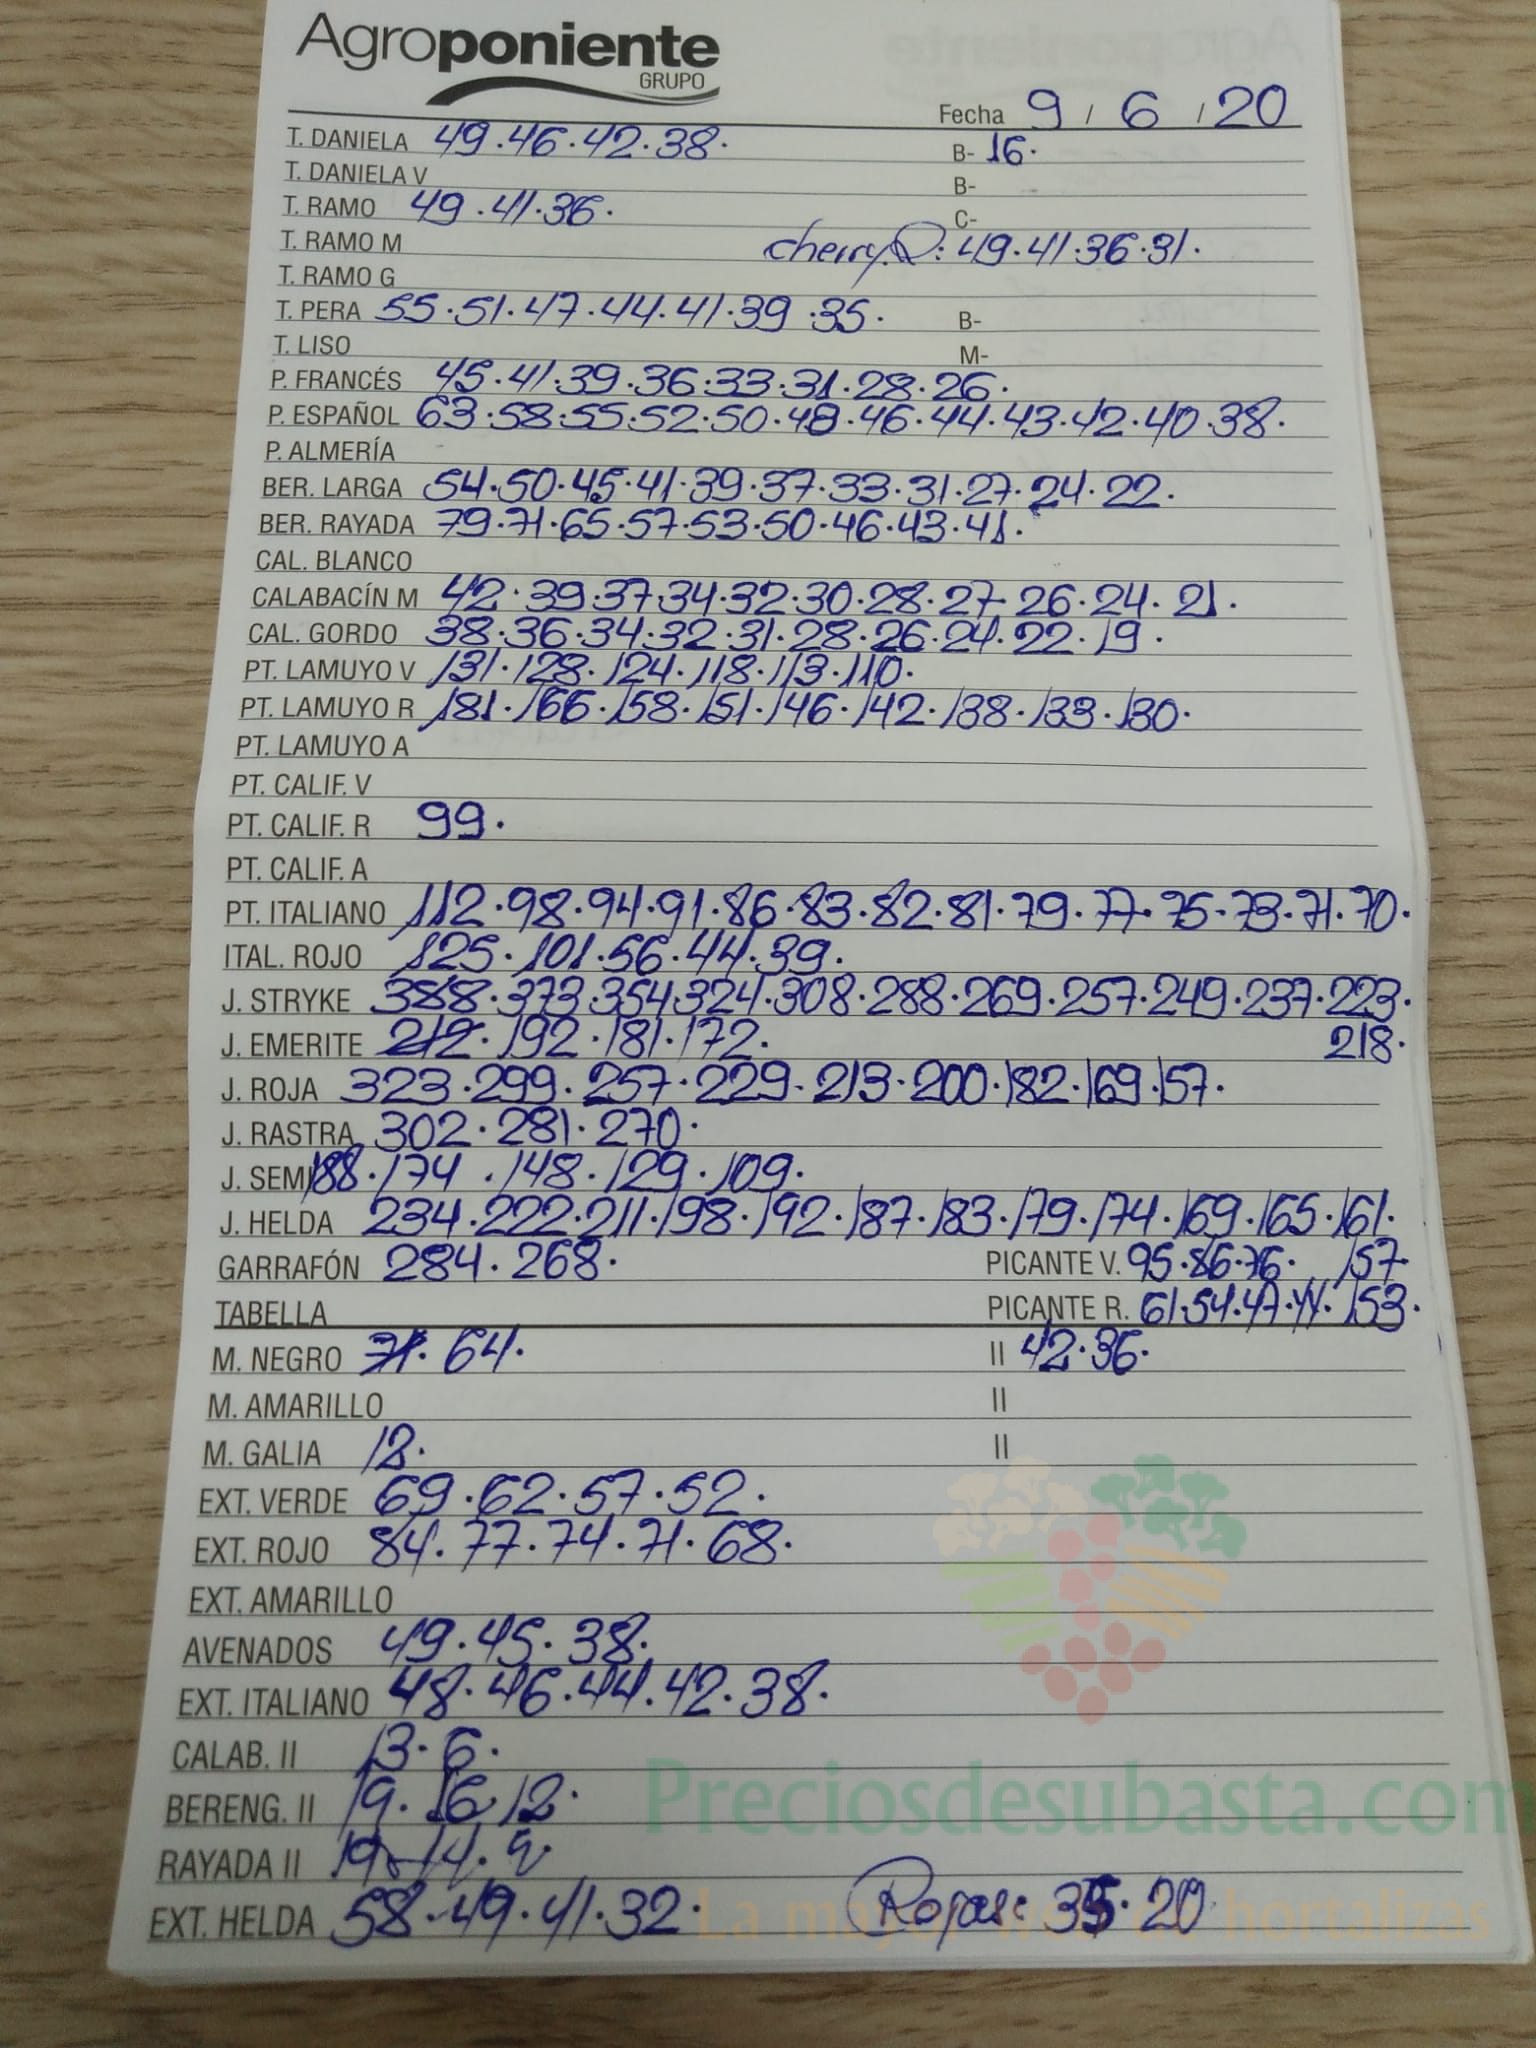 Agroponiente
GRUPO
Fecha 9 / 6 / 20
T. DANIELA 49.46.42.38. B- 16.
T. DANIELA V B-
T. RAMO 49.41.36. C-
T. RAMO M cherry.R: 49.41.36.31.
T. RAMO G
T. PERA 55.51.47.44.41.39.35. B-
T. LISO M-
P. FRANCÉS 45.41.39.36.33.31.28.26.
P. ESPAÑOL 63.58.55.52.50.48.46.44.43.42.40.38.
P. ALMERÍA
BER. LARGA 54.50.45.41.39.37.33.31.27.24.22.
BER. RAYADA 79.71.65.57.53.50.46.43.41.
CAL. BLANCO
CALABACÍN M 42.39.37.34.32.30.28.27.26.24.21.
CAL. GORDO 38.36.34.32.31.28.26.24.22.19.
PT. LAMUYO V 131.128.124.118.113.110.
PT. LAMUYO R 181.166.158.151.146.142.138.133.130.
PT. LAMUYO A
PT. CALIF. V
PT. CALIF. R 99.
PT. CALIF. A
PT. ITALIANO 112.98.94.91.86.83.82.81.79.77.75.73.71.70.
ITAL. ROJO 125.101.56.44.39.
J. STRYKE 388.373.354.324.308.288.269.257.249.237.223.
J. EMERITE 212.192.181.172. 218.
J. ROJA 323.299.257.229.213.200.182.169.157.
J. RASTRA 302.281.270.
J. SEMI 188.174.148.129.109.
J. HELDA 234.222.211.198.192.187.183.179.174.169.165.161.
GARRAFÓN 284.268. PICANTE V. 95.86.76. 157.
TABELLA PICANTE R. 61.54.47.44. 153.
M. NEGRO 71.64. II 42.36.
M. AMARILLO II
M. GALIA 12. II
EXT. VERDE 69.62.57.52.
EXT. ROJO 84.77.74.71.68.
EXT. AMARILLO
AVENADOS 49.45.38.
EXT. ITALIANO 48.46.44.42.38.
CALAB. II 13.6.
Preciosdesubasta.com
BERENG. II 19.16.12.
RAYADA II 19.14.9.
EXT. HELDA 58.49.41.32. Rojas: 35.20
La mayor web de hortalizas